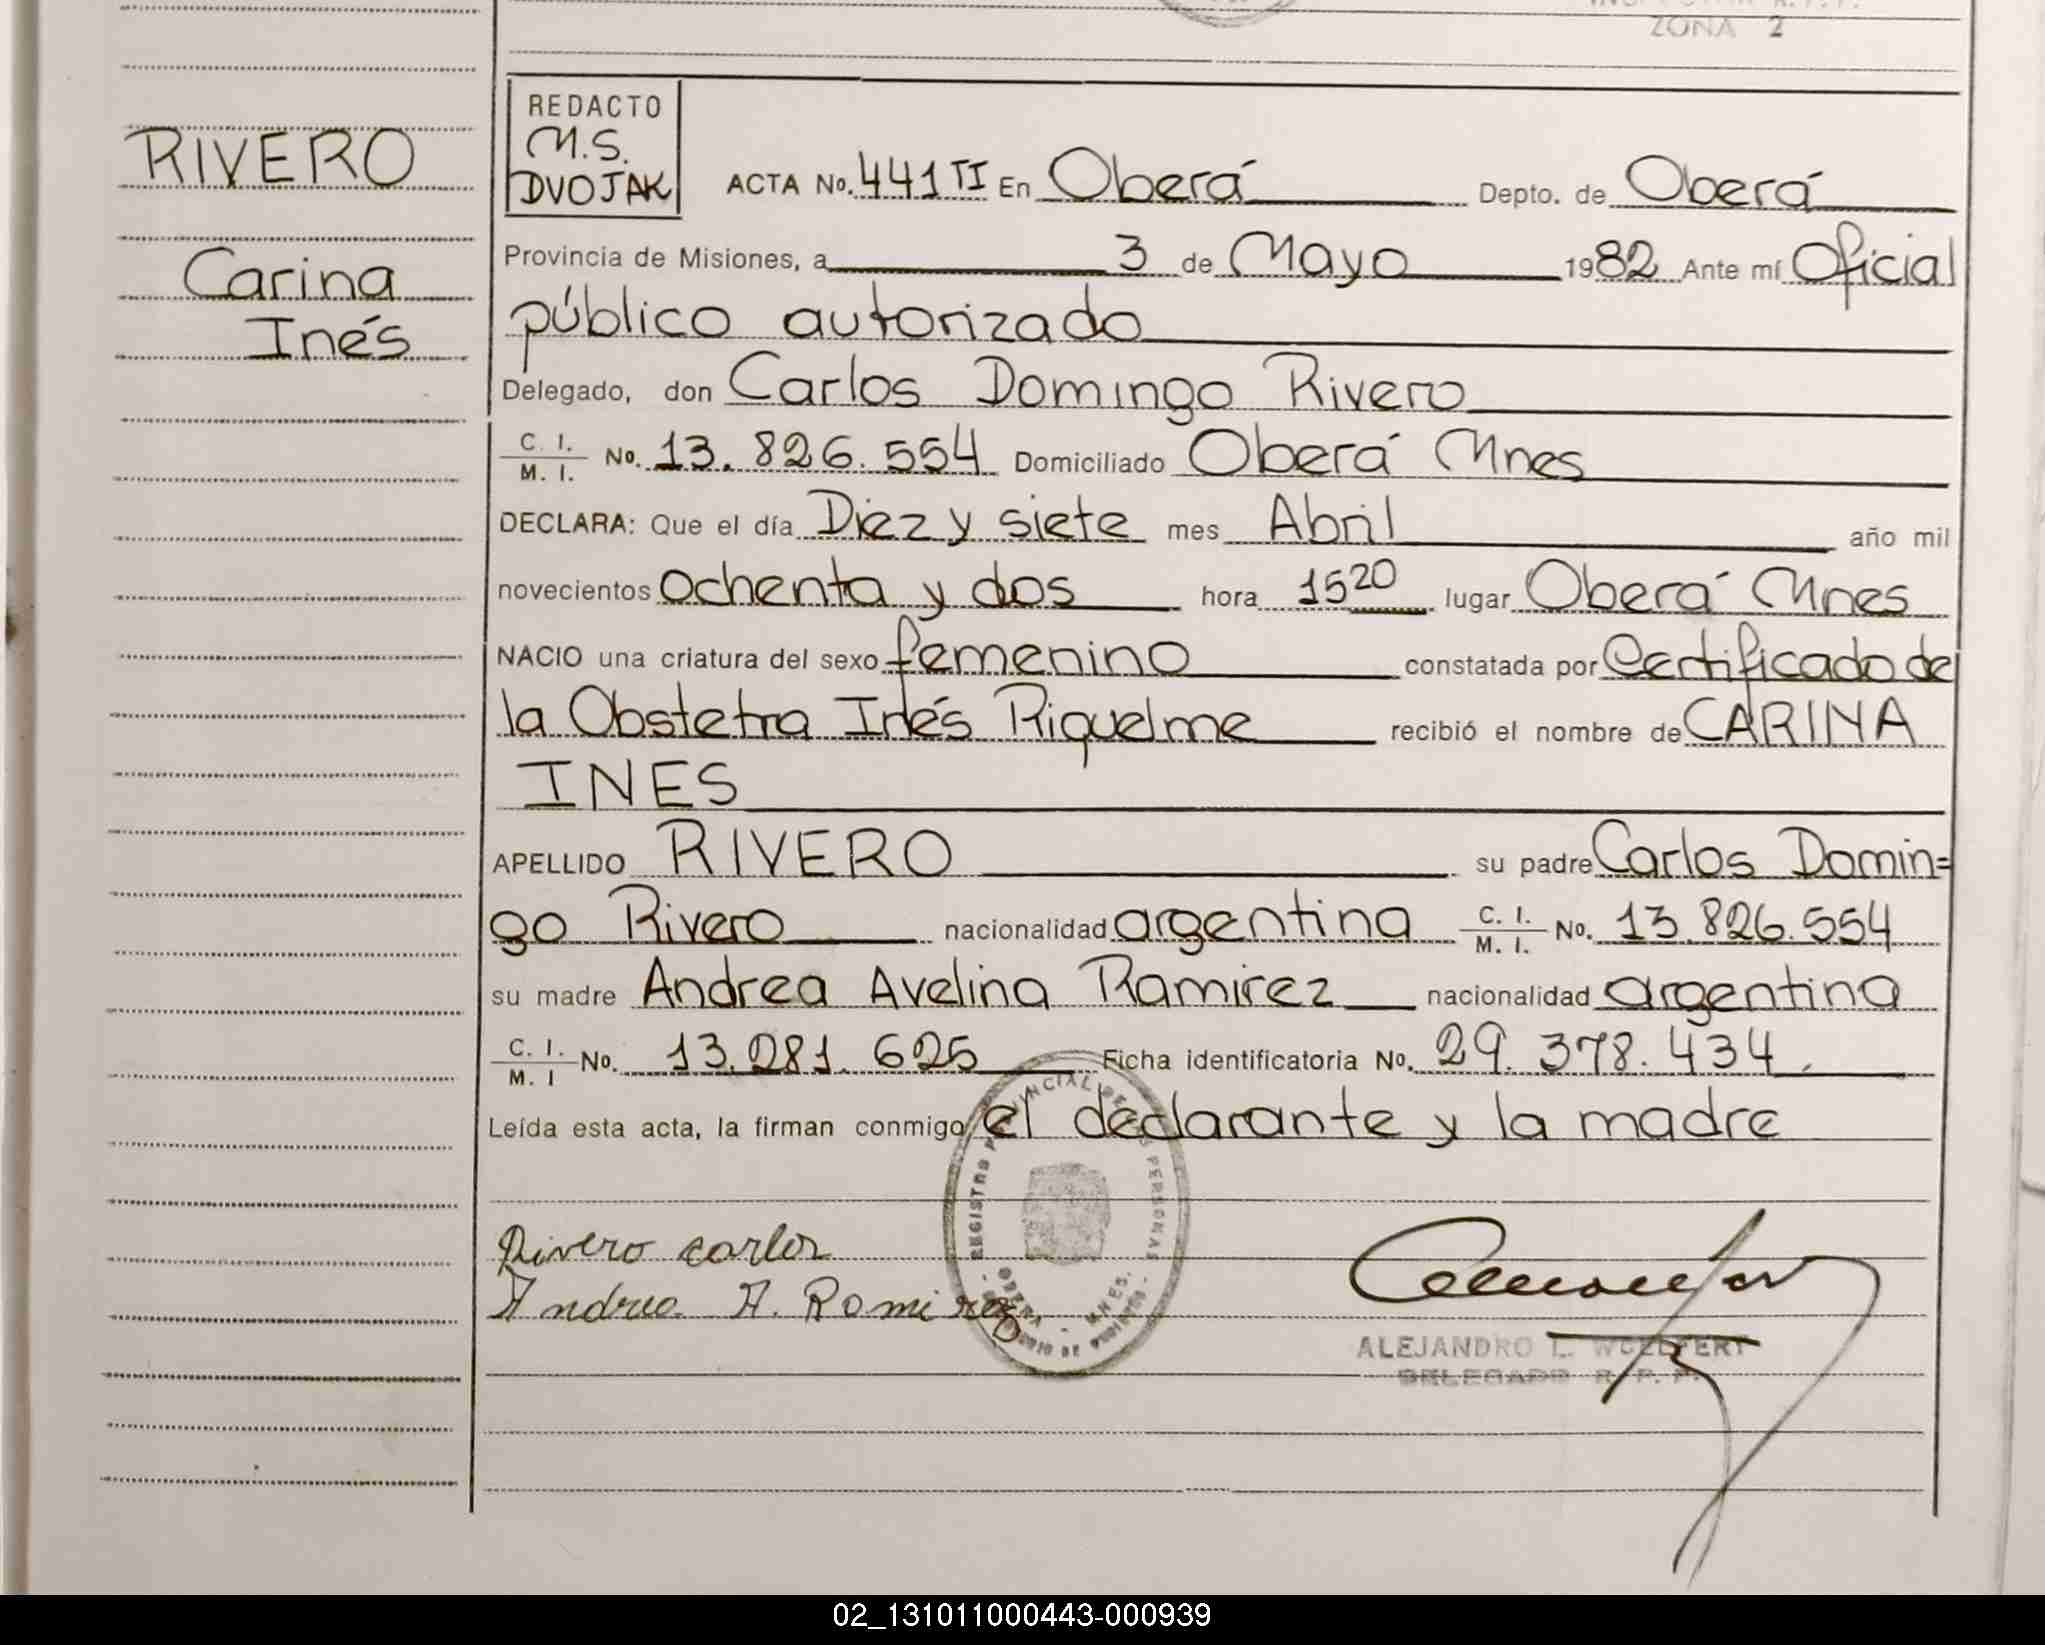 ZONA 2
RIVERO
Carina
Inés
REDACTO
M.S.
DVOJAK
ACTA No. 441 TI En Oberá Depto. de Oberá
Provincia de Misiones, a 3 de Mayo 1982 Ante mí Oficial
público autorizado
Delegado, don Carlos Domingo Rivero
C. I. / M. I. No. 13.826.554 Domiciliado Oberá Mnes
DECLARA: Que el día Diez y siete mes Abril año mil
novecientos ochenta y dos hora 15 20 lugar Oberá Mnes
NACIO una criatura del sexo femenino constatada por Certificado de
la Obstetra Inés Riquelme recibió el nombre de CARINA
INES
APELLIDO RIVERO su padre Carlos Domin=
go Rivero nacionalidad argentina C. I. / M. I. No. 13.826.554
su madre Andrea Avelina Ramirez nacionalidad argentina
C. I. / M. I No. 13.281.625 Ficha identificatoria No. 29.378.434.
Leída esta acta, la firman conmigo el declarante y la madre
Rivero Carlos
Andrea A. Romirez
REGISTRO PROVINCIAL DE LAS PERSONAS
OBERA - MNES.
ALEJANDRO L. WOELFERT
DELEGADO R. P. P.
02_131011000443-000939